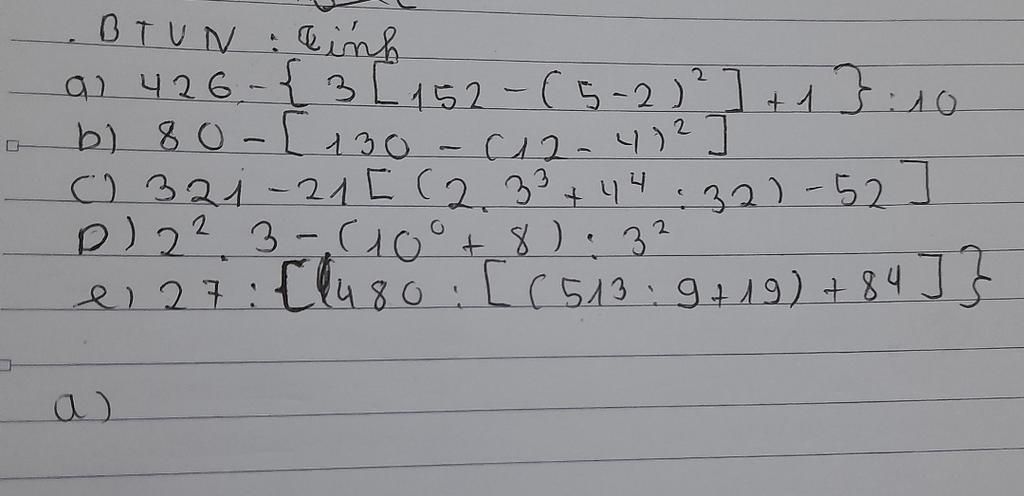 . BTVN : Tính
a) 426 - { 3 [ 152 - ( 5 - 2 )² ] + 1 } : 10
b) 80 - [ 130 - ( 12 - 4 )² ]
C) 321 - 21 [ ( 2 . 3³ + 4⁴ : 32 ) - 52 ]
D) 2² . 3 - ( 10⁰ + 8 ) : 3²
e) 27 : { 480 : [ ( 513 : 9 + 19 ) + 84 ] }
a)